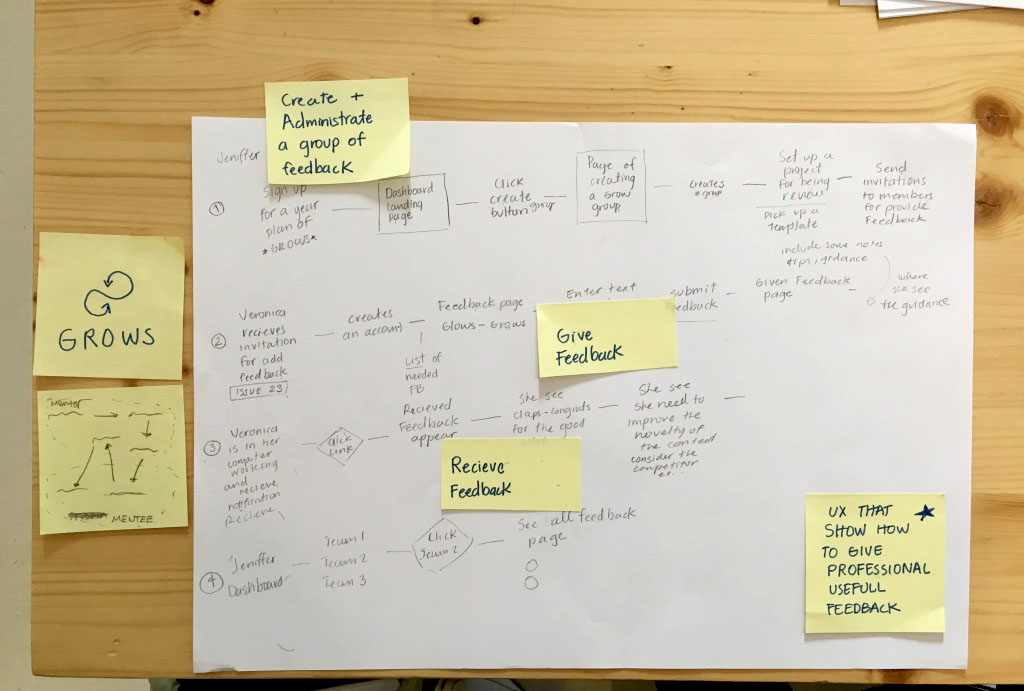 Create +
Administrate
a group of
feedback
Jeniffer
Sign up
for a year
plan of
*GROWS*
1
Dashboard
Landing
page
Click
create
button group
Page of
creating
a Grow
group
creates
a group
Set up a
project
for being
review
Pick up a
Template
Send
invitations
to members
for provide
Feedback
include some notes
tips, guidance
where
she see
the guidance
GROWS
2
Veronica
recieves
invitation
for add
feedback
ISSUE 23
creates
an account
Feedback page
Glows - Grows
List of
needed
FB
Enter text
Give
Feedback
submit
feedback
Given Feedback
page
Mentor
MENTEE
3
Veronica
is in her
computer
working
and
recieve
notification
Recieve
Click
Link
Recieved
Feedback
appear
She see
claps-congrats
for the good
She see
she need to
improve the
novelty of
the content
consider the
competitor
Recieve
Feedback
4
Jeniffer
Dashboard
Team 1
Team 2
Team 3
Click
Team 2
See all feedback
page
UX THAT
SHOW HOW
TO GIVE
PROFESSIONAL
USEFULL
FEEDBACK